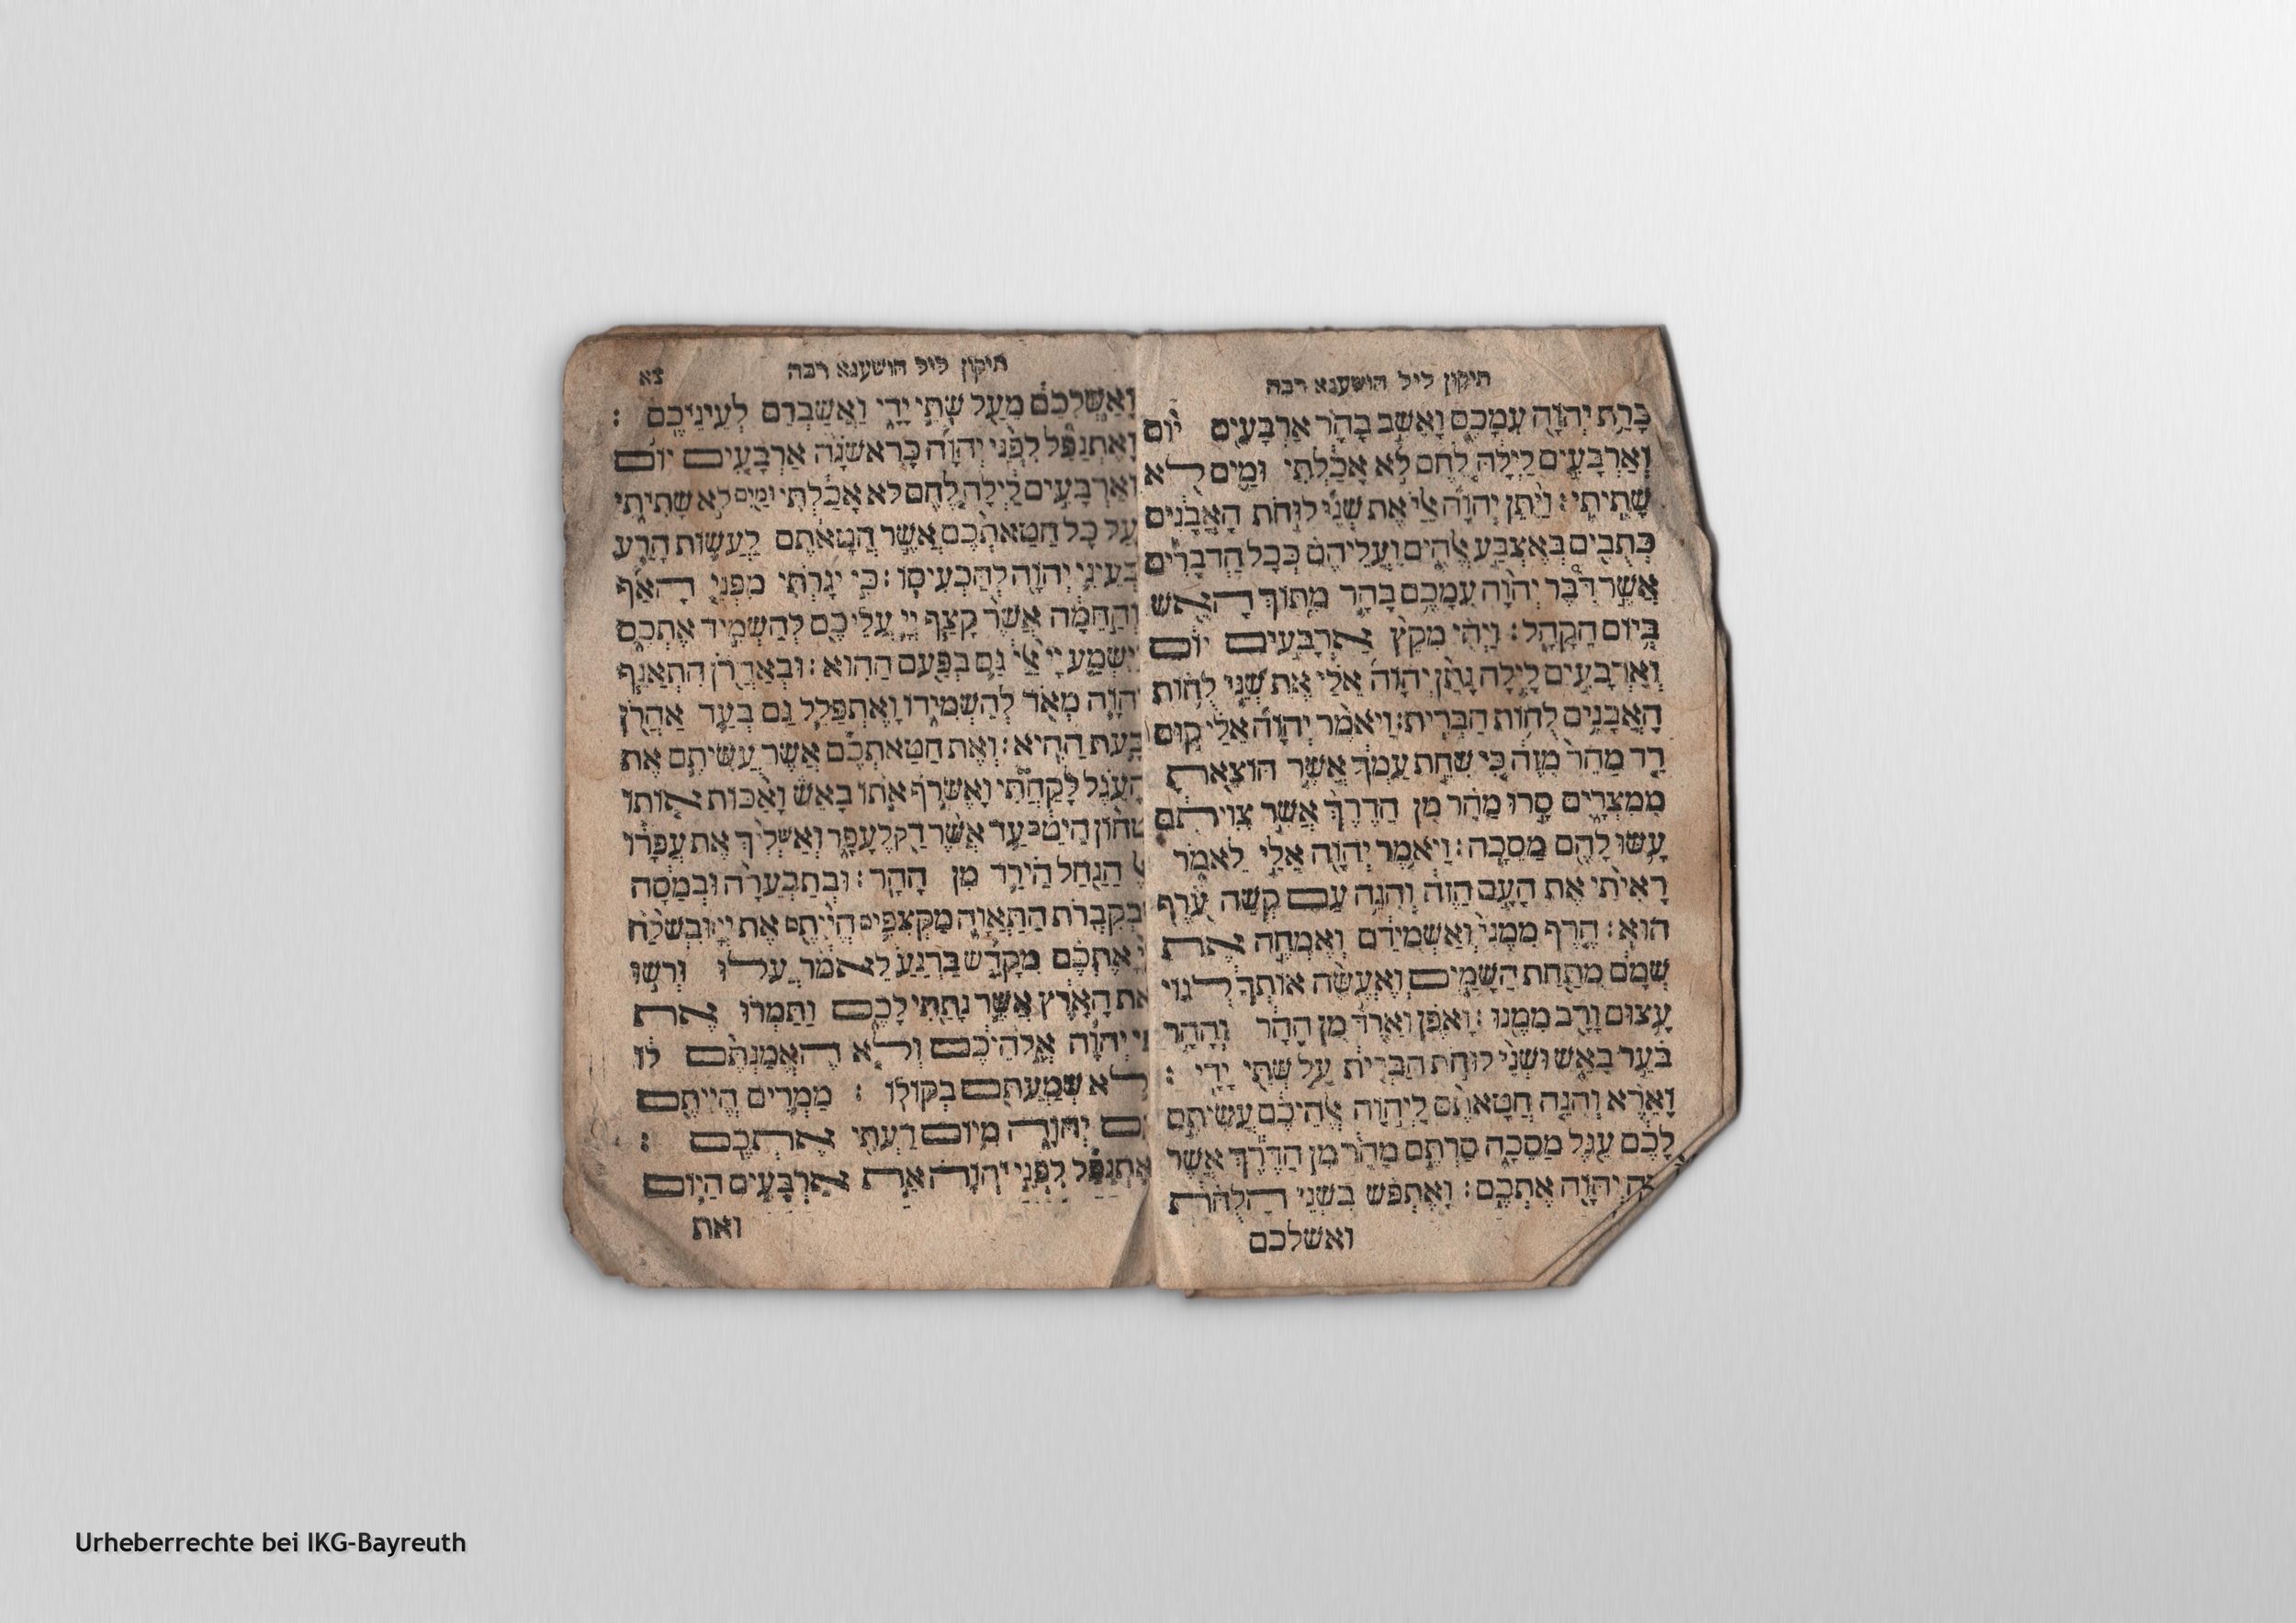 תיקון ליל הושענא רבה
כָּרַת יְהוָֹה עִמָּכֶם וָאֵשֵׁב בָּהָר אַרְבָּעִים יוֹם
וְאַרְבָּעִים לַיְלָה לֶחֶם לֹא אָכַלְתִּי וּמַיִם לֹא
שָׁתִיתִי: וַיִּתֵּן יְהוָֹה אֵלַי אֶת שְׁנֵי לוּחֹת הָאֲבָנִים
כְּתֻבִים בְּאֶצְבַּע אֱלֹהִים וַעֲלֵיהֶם כְּכָל הַדְּבָרִים
אֲשֶׁר דִּבֶּר יְהוָֹה עִמָּכֶם בָּהָר מִתּוֹךְ הָאֵשׁ
בְּיוֹם הַקָּהָל: וַיְהִי מִקֵּץ אַרְבָּעִים יוֹם
וְאַרְבָּעִים לָיְלָה נָתַן יְהוָֹה אֵלַי אֶת שְׁנֵי לֻחוֹת
הָאֲבָנִים לֻחוֹת הַבְּרִית: וַיֹּאמֶר יְהוָֹה אֵלַי קוּם
רֵד מַהֵר מִזֶּה כִּי שִׁחֵת עַמְּךָ אֲשֶׁר הוֹצֵאתָ
מִמִּצְרָיִם סָרוּ מַהֵר מִן הַדֶּרֶךְ אֲשֶׁר צִוִּיתִם
עָשׂוּ לָהֶם מַסֵּכָה: וַיֹּאמֶר יְהוָֹה אֵלַי לֵאמֹר
רָאִיתִי אֶת הָעָם הַזֶּה וְהִנֵּה עַם קְשֵׁה עֹרֶף
הוּא: הֶרֶף מִמֶּנִּי וְאַשְׁמִידֵם וְאֶמְחֶה אֶת
שְׁמָם מִתַּחַת הַשָּׁמָיִם וְאֶעֱשֶׂה אוֹתְךָ לְגוֹי
עָצוּם וָרָב מִמֶּנּוּ: וָאֵפֶן וָאֵרֵד מִן הָהָר וְהָהָר
בֹּעֵר בָּאֵשׁ וּשְׁנֵי לוּחֹת הַבְּרִית עַל שְׁתֵּי יָדָי:
וָאֵרֶא וְהִנֵּה חֲטָאתֶם לַיהוָֹה אֱלֹהֵיכֶם עֲשִׂיתֶם
לָכֶם עֵגֶל מַסֵּכָה סַרְתֶּם מַהֵר מִן הַדֶּרֶךְ אֲשֶׁר
יְהוָֹה אֶתְכֶם: וָאֶתְפֹּשׂ בִּשְׁנֵי הַלֻּחֹת
ואשלכם
תיקון ליל הושענא רבה צא
וָאַשְׁלִכֵם מֵעַל שְׁתֵּי יָדָי וָאֲשַׁבְּרֵם לְעֵינֵיכֶם:
וָאֶתְנַפַּל לִפְנֵי יְהוָֹה כָּרִאשֹׁנָה אַרְבָּעִים יוֹם
וְאַרְבָּעִים לַיְלָה לֶחֶם לֹא אָכַלְתִּי וּמַיִם לֹא שָׁתִיתִי
עַל כָּל חַטַּאתְכֶם אֲשֶׁר חֲטָאתֶם לַעֲשׂוֹת הָרַע
בְּעֵינֵי יְהוָֹה לְהַכְעִיסוֹ: כִּי יָגֹרְתִּי מִפְּנֵי הָאַף
וְהַחֵמָה אֲשֶׁר קָצַף יְיָ עֲלֵיכֶם לְהַשְׁמִיד אֶתְכֶם
וַיִּשְׁמַע יְיָ אֵלַי גַּם בַּפַּעַם הַהִוא: וּבְאַהֲרֹן הִתְאַנַּף
יְהוָֹה מְאֹד לְהַשְׁמִידוֹ וָאֶתְפַּלֵּל גַּם בְּעַד אַהֲרֹן
בָּעֵת הַהִיא: וְאֶת חַטַּאתְכֶם אֲשֶׁר עֲשִׂיתֶם אֶת
הָעֵגֶל לָקַחְתִּי וָאֶשְׂרֹף אֹתוֹ בָּאֵשׁ וָאֶכּוֹת אוֹתוֹ
טָחוֹן הֵיטֵב עַד אֲשֶׁר דַּק לְעָפָר וָאַשְׁלִיךְ אֶת עֲפָרוֹ
אֶל הַנַּחַל הַיֹּרֵד מִן הָהָר: וּבְתַבְעֵרָה וּבְמַסָּה
וּבְקִבְרֹת הַתַּאֲוָה מַקְצִפִים הֱיִיתֶם אֶת יְיָ: וּבִשְׁלֹחַ
יְיָ אֶתְכֶם מִקָּדֵשׁ בַּרְנֵעַ לֵאמֹר עֲלוּ וּרְשׁוּ
אֶת הָאָרֶץ אֲשֶׁר נָתַתִּי לָכֶם וַתַּמְרוּ אֶת
פִּי יְהוָֹה אֱלֹהֵיכֶם וְלֹא הֶאֱמַנְתֶּם לוֹ
וְלֹא שְׁמַעְתֶּם בְּקוֹלוֹ: מַמְרִים הֱיִיתֶם
עִם יְהוָֹה מִיּוֹם דַּעְתִּי אֶתְכֶם:
וָאֶתְנַפַּל לִפְנֵי יְהוָֹה אֵת אַרְבָּעִים הַיּוֹם
ואת
Urheberrechte bei IKG-Bayreuth